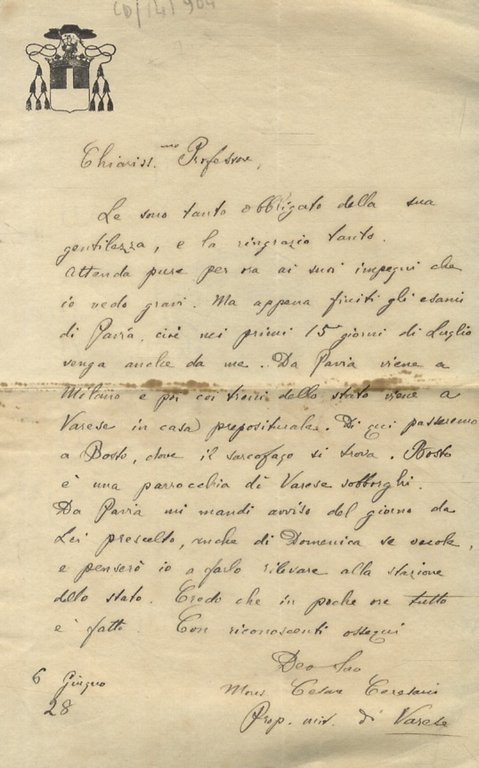 CD/14/904
Chiariss.mo Professore,
Le sono tanto obbligato della sua
gentilezza, e la ringrazio tanto.
Attenda pure per ora ai suoi impegni che
io vedo gravi. Ma appena finiti gli esami
di Pavia, cioè nei primi 15 giorni di Luglio
venga anche da me. Da Pavia viene a
Milano e poi coi treni dello stato viene a
Varese in casa prepositurale. Di qui passeremo
a Bosto, dove il sarcofago si trova. Bosto
è una parrocchia di Varese sobborghi.
Da Pavia mi mandi avviso del giorno da
Lei prescelto, anche di Domenica se vuole,
e penserò io a farlo rilevare alla stazione
dello stato. Credo che in poche ore tutto
è fatto. Con riconoscenti ossequi
Dev Suo
6 Giugno
28
Mons Cesare
Prop. mit. di Varese